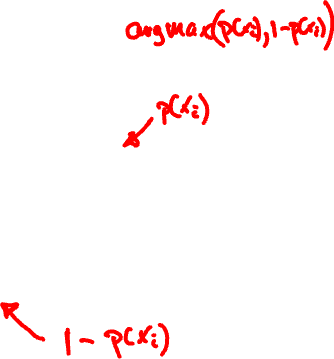 argmax(p(xi), 1-p(xi))
p(xi)
1 - p(xi)